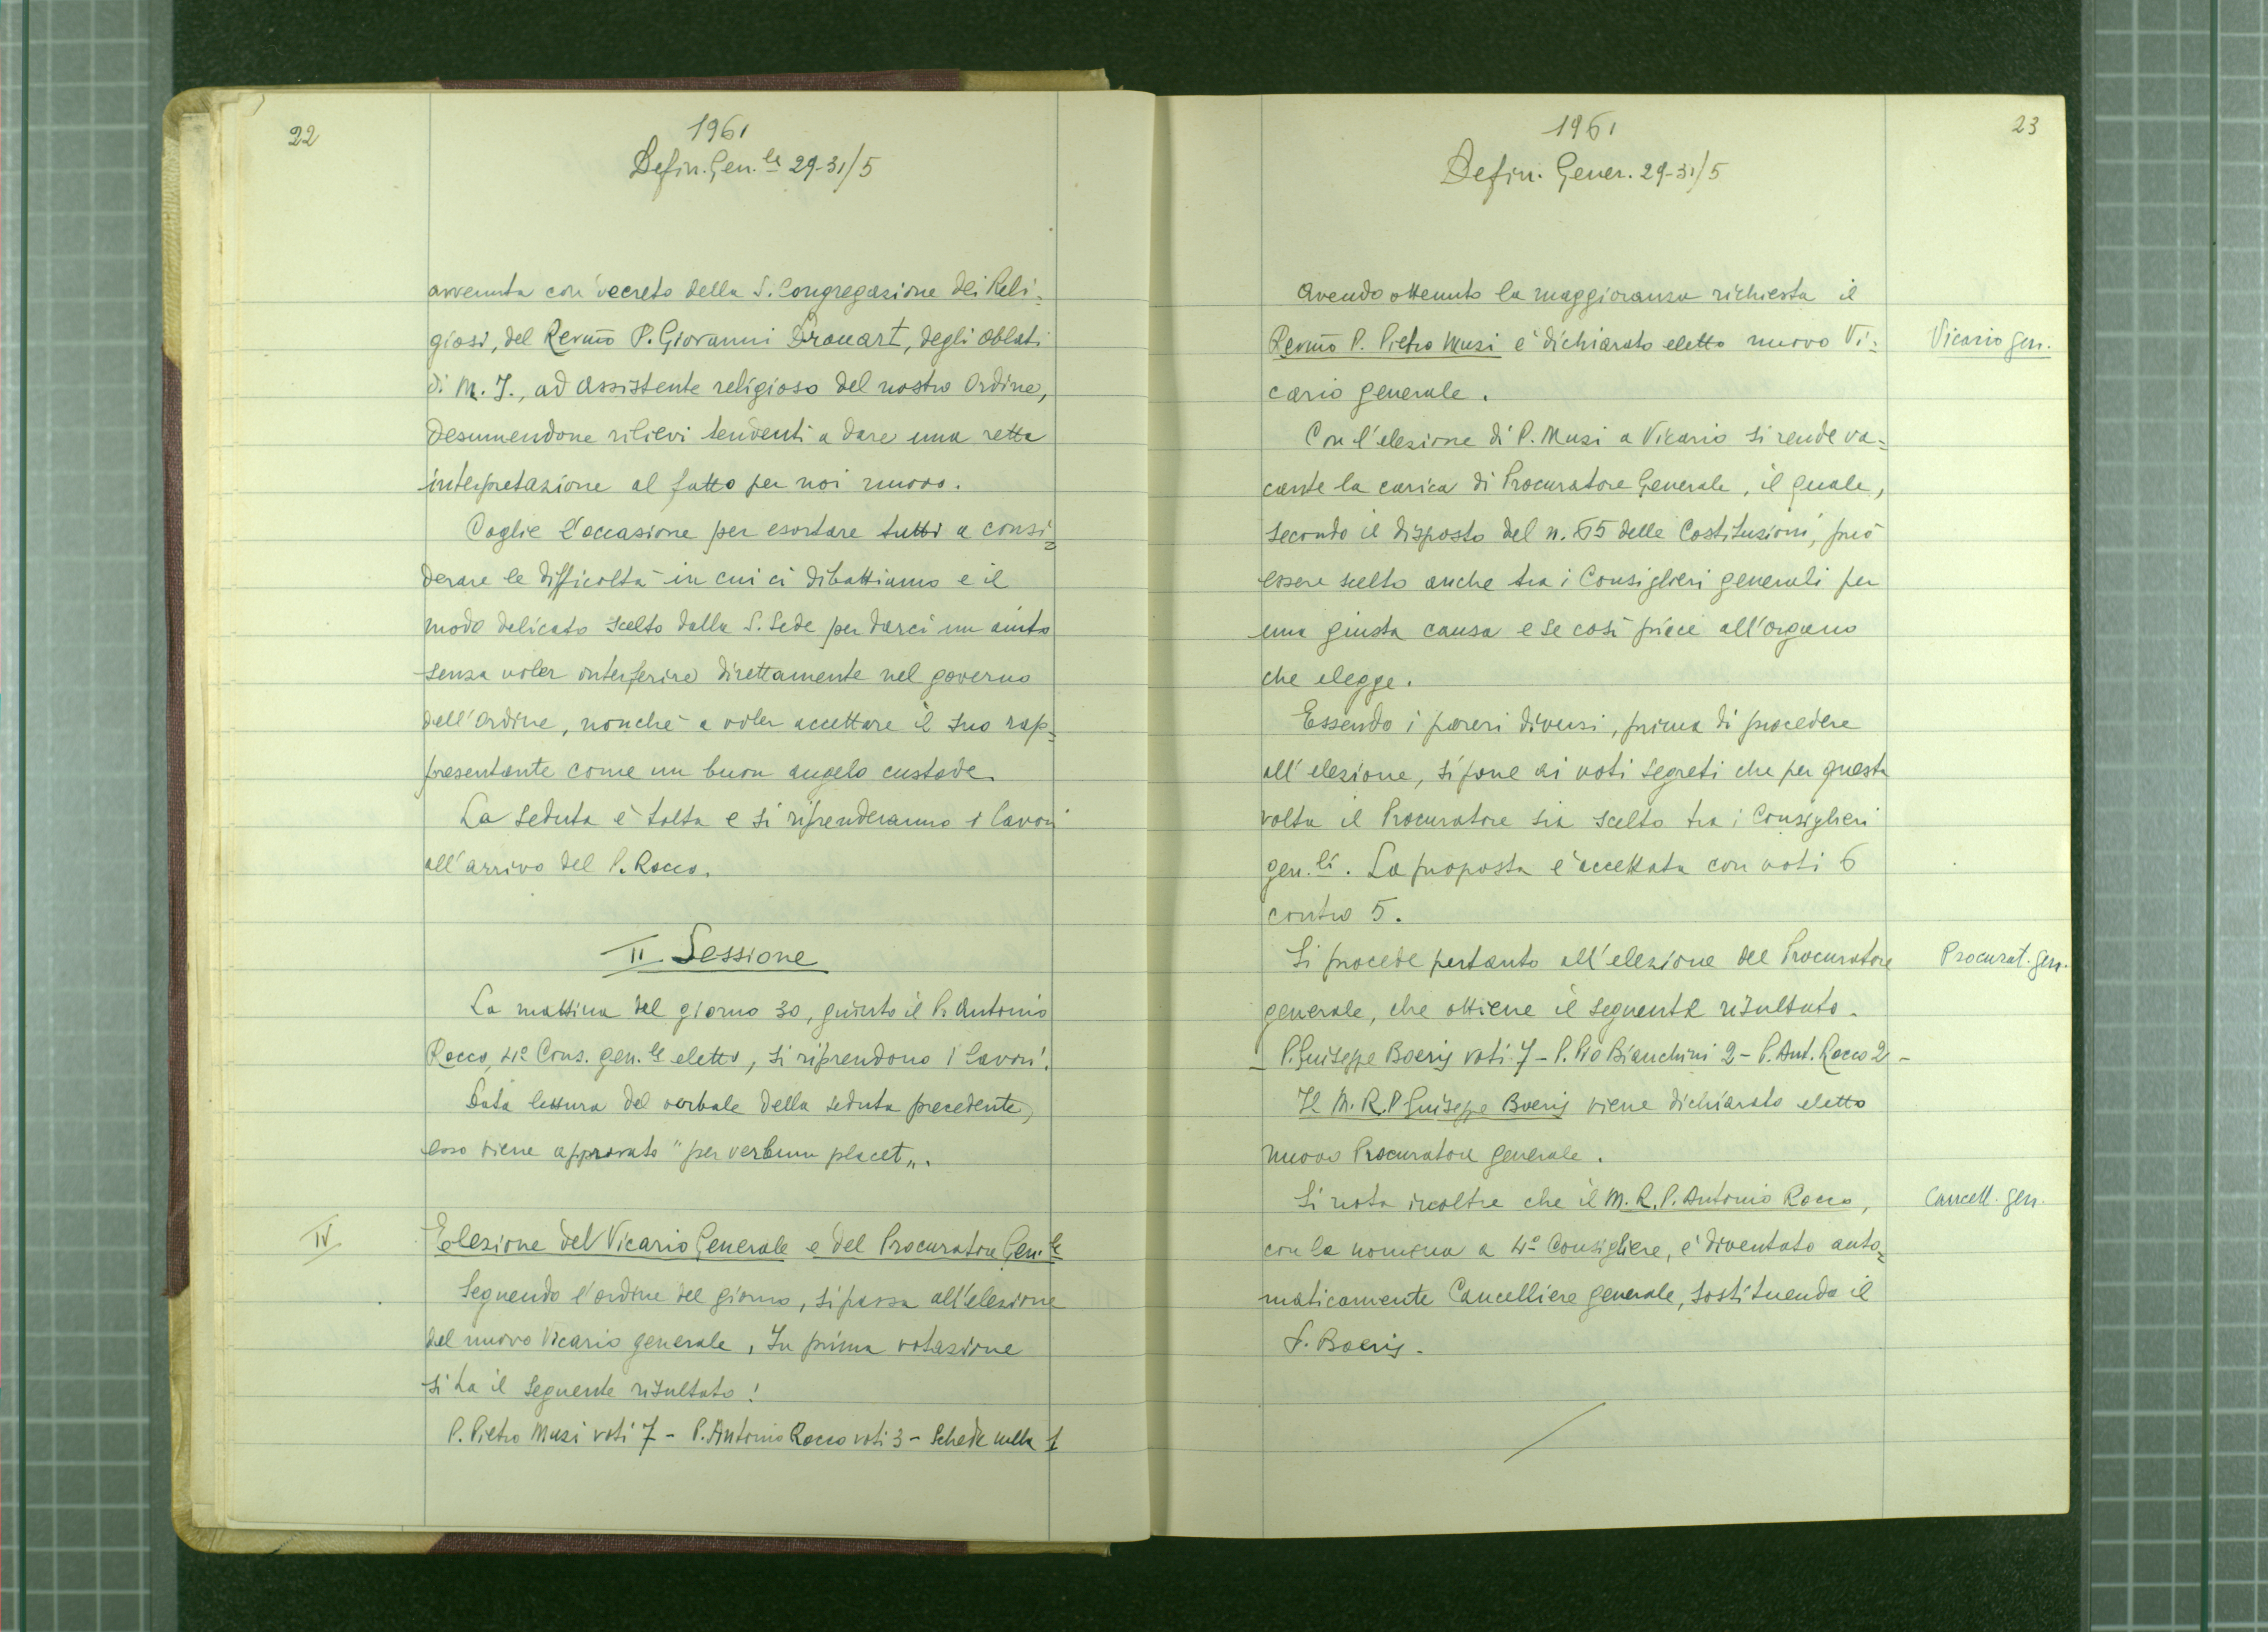 22
1961
Defin. Gen.le 29-31/5
avvenuta con decreto della S. Congregazione dei Reli=
giosi, del Revmo P. Giovanni Drouart, degli Oblati
di M. I., ad Assistente religioso del nostro Ordine,
desumendone rilievi tendenti a dare una retta
interpretazione al fatto per noi nuovo.
Coglie l'occasione per esortare tutti a consi=
derare le difficoltà in cui ci dibattiamo e il
modo delicato scelto dalla S. Sede per darci un aiuto
senza voler interferire direttamente nel governo
dell'Ordine, nonché a voler accettare il suo rap=
presentante come un buon angelo custode.
La seduta è tolta e si riprenderanno i lavori
all'arrivo del P. Rocco.
II Sessione
La mattina del giorno 30, giunto il P. Antonio
Rocco, 4º Cons. gen.le eletto, si riprendono i lavori.
Data lettura del verbale della seduta precedente,
esso viene approvato "per verbum placet".
IV
Elezione del Vicario Generale e del Procuratore Gen.le
Seguendo l'ordine del giorno, si passa all'elezione
del nuovo Vicario generale. In prima votazione
si ha il seguente risultato:
P. Pietro Musi voti 7 - P. Antonio Rocco voti 3 - Schede nulle 1
23
1961
Defin. Gener. 29-31/5
Avendo ottenuto la maggioranza richiesta il
Revmo P. Pietro Musi è dichiarato eletto nuovo Vi=
Vicario gen.
cario generale.
Con l'elezione di P. Musi a Vicario si rende va=
cante la carica di Procuratore Generale, il quale,
secondo il disposto del n. 65 delle Costituzioni, può
essere scelto anche tra i Consiglieri generali per
una giusta causa e se così piace all'organo
che elegge.
Essendo i pareri diversi, prima di procedere
all'elezione, si pone ai voti segreti che per questa
volta il Procuratore sia scelto tra i Consiglieri
gen.li. La proposta è accettata con voti 6
contro 5.
Si procede pertanto all'elezione del Procuratore
Procurat. gen.
generale, che ottiene il seguente risultato.
- P. Giuseppe Boeris voti 7 - P. Pio Bianchini 2 - P. Ant. Rocco 2 -
Il M. R. P. Giuseppe Boeris viene dichiarato eletto
nuovo Procuratore generale.
Si nota inoltre che il M. R. P. Antonio Rocco,
Cancell. gen.
con la nomina a 4º Consigliere, è diventato auto=
maticamente Cancelliere generale, sostituendo il
P. Boeris.